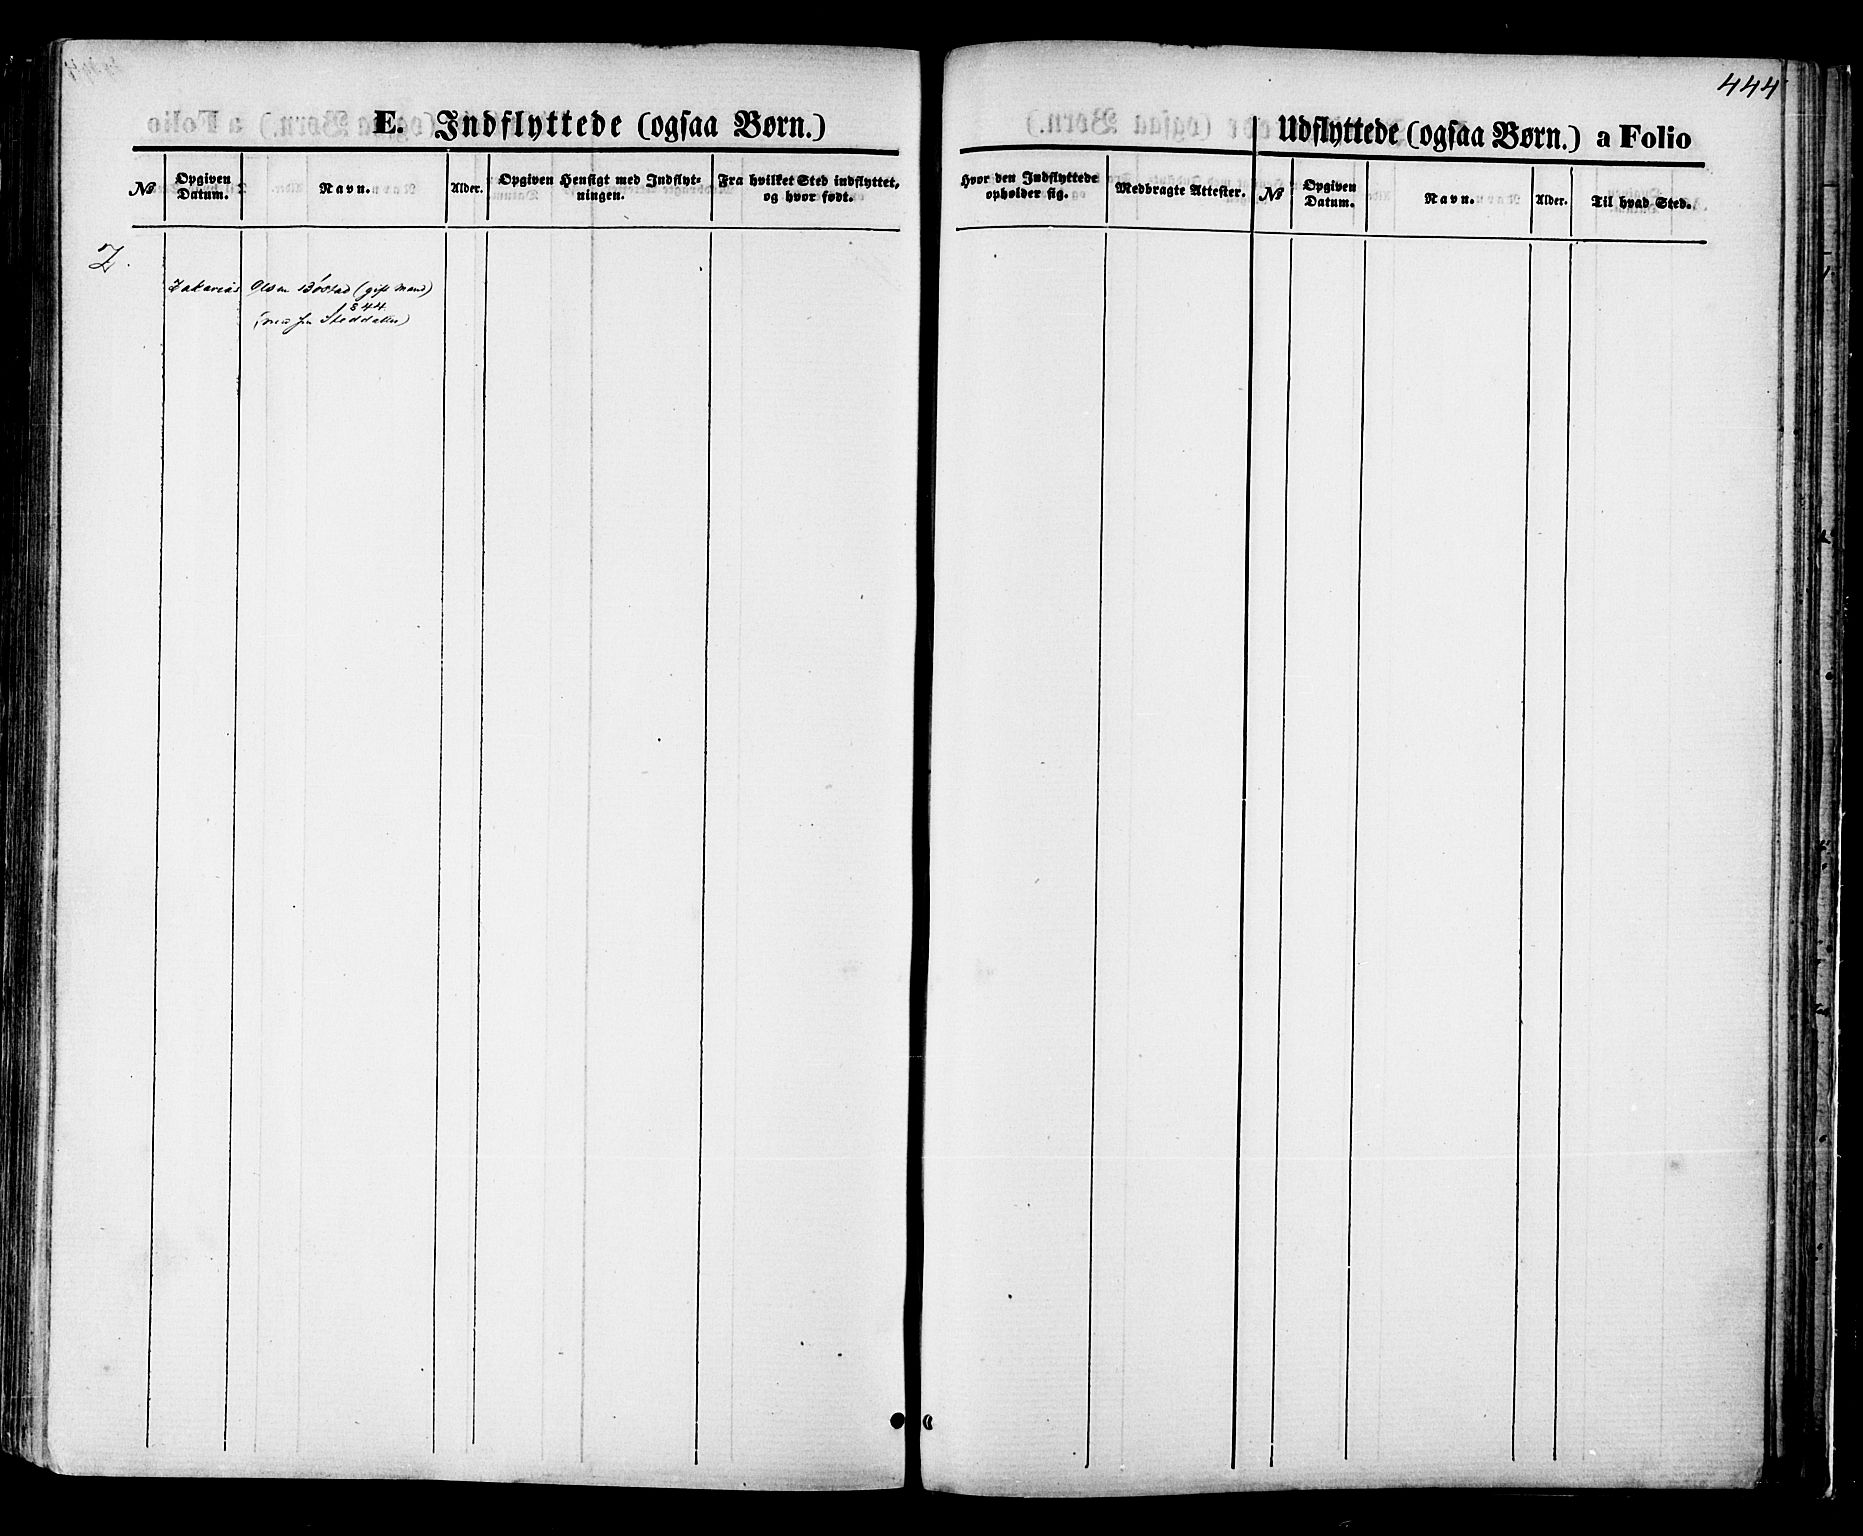 444
E. Indflyttede (ogsaa Børn.)
Udflyttede (ogsaa Børn.) a Folio
No
Opgiven Datum.
Navn.
Alder.
Opgiven Hensigt med Indflyt-
ningen.
Fra hvilket Sted indflyttet,
og hvor født.
Hvor den Indflyttede
opholder sig.
Medbragte Attester.
No
Opgiven Datum.
Navn.
Alder.
Til hvad Sted.
Z.
Zakarias Olsen (gift Mand)
1844